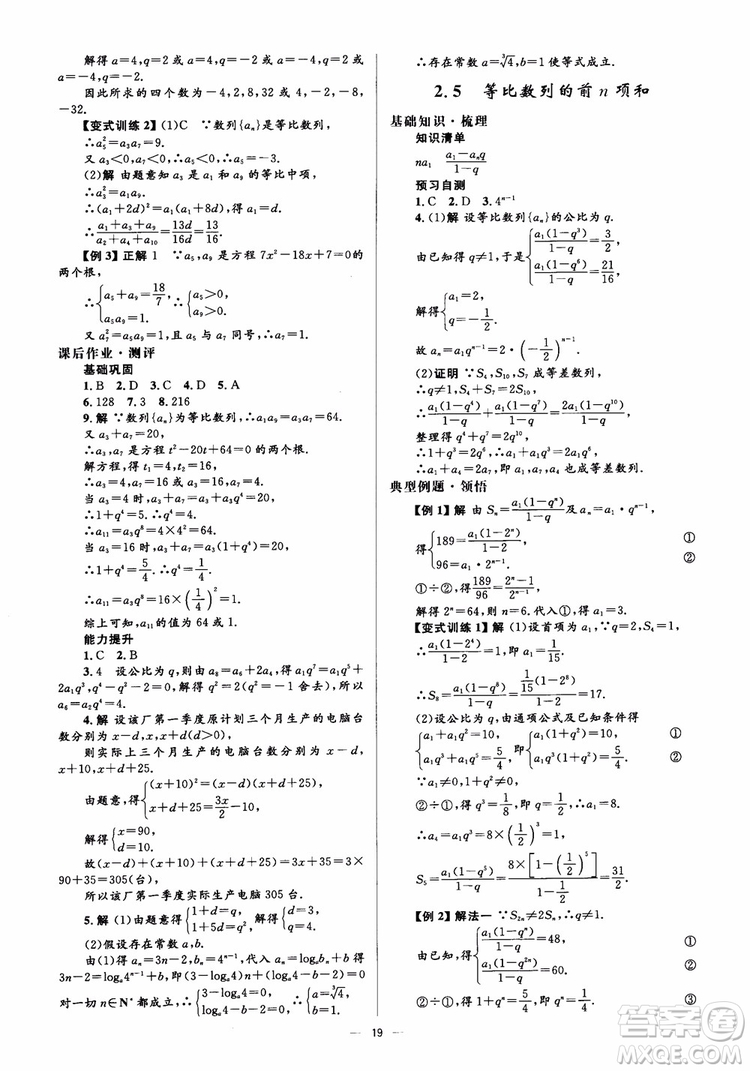 解得 a=4,q=2 或 a=4,q=-2 或 a=-4,q=2 或
a=-4,q=-2.
因此所求的四个数为-4,2,8,32 或 4,-2,-8,
-32.
【变式训练2】(1)C ∵数列{aₙ}是等比数列,
∴a₅²=a₁a₉=9.
又 a₃<0,a₇<0,∴a₅<0,∴a₅=-3.
(2)解 由题意知 a₃ 是 a₁ 和 a₉ 的等比中项,
∴a₃²=a₁a₉,
∴(a₁+2d)²=a₁(a₁+8d),得 a₁=d.
∴(a₁+a₃+a₉)/(a₂+a₄+a₁₀)=13d/16d=13/16.
【例3】正解 1 ∵a₅,a₉ 是方程 7x²-18x+7=0 的
两个根,
∴{a₅+a₉=18/7, a₅a₉=1. ∴{a₅>0, a₉>0.
又∵a₇²=a₅a₉=1,且 a₅ 与 a₇ 同号,∴a₇=1.
课后作业·测评
基础巩固
1.B 2.B 3.D 4.D 5.A
6.128 7.3 8.216
9.解 ∵数列{aₙ}为等比数列,∴a₃a₇=a₁a₉=64.
又∵a₃+a₇=20,
∴a₃,a₇ 是方程 t²-20t+64=0 的两个根.
解方程,得 t₁=4,t₂=16,
∴a₃=4,a₇=16 或 a₃=16,a₇=4.
当 a₃=4 时,a₃+a₇=a₃+a₃q⁴=20,
∴1+q⁴=5,∴q⁴=4.
∴a₁₁=a₃q⁸=4×4²=64.
当 a₃=16 时,a₃+a₇=a₃(1+q⁴)=20,
∴1+q⁴=5/4.∴q⁴=1/4.
∴a₁₁=a₃q⁸=16×(1/4)²=1.
综上可知,a₁₁ 的值为 64 或 1.
能力提升
1.C 2.B
3.4 设公比为 q,则由 a₈=a₆+2a₄,得 a₁q⁷=a₁q⁵+
2a₁q³,q⁴-q²-2=0,解得 q²=2(q²=-1 舍去),所以
a₆=a₂q⁴=4.
4.解 设该厂第一季度原计划三个月生产的电脑台
数分别为 x-d,x,x+d(d>0),
则实际上三个月生产的电脑台数分别为 x-d,
x+10,x+d+25,
由题意,得{(x+10)²=(x-d)(x+d+25), x+d+25=3x/2-10,
解得{x=90, d=10.
故(x-d)+(x+10)+(x+d+25)=3x+35=3×
90+35=305(台),
所以该厂第一季度实际生产电脑 305 台.
5.解 (1)由题意得{1+d=q, 1+5d=q²,解得{d=3, q=4.
(2)假设存在常数 a,b.
由(1)得 aₙ=3n-2,bₙ=4ⁿ⁻¹,代入已知,得
3n-2=logₐ4ⁿ⁻¹+b,即(3-logₐ4)n+(logₐ4-b-2)=0
对一切 n∈N* 都成立,∴{3-logₐ4=0, logₐ4-b-2=0,∴{a=∛4, b=1.
∴存在常数 a=∛4,b=1 使等式成立.
2.5 等比数列的前n项和
基础知识·梳理
知识清单
na₁ (a₁-aₙq)/(1-q)
预习自测
1.C 2.D 3.4ⁿ⁻¹
4.(1)解 设等比数列{aₙ}的公比为 q.
由已知得 q≠1,于是{a₁(1-q³)/(1-q)=3/2, a₁(1-q⁶)/(1-q)=21/16,
解得{a₁=2, q=-1/2.
故 aₙ=a₁qⁿ⁻¹=2×(-1/2)ⁿ⁻¹.
(2)证明 ∵S₄,S₁₀,S₇ 成等差数列,
∴q≠1,S₄+S₇=2S₁₀,
∴a₁(1-q⁴)/(1-q)+a₁(1-q⁷)/(1-q)=2a₁(1-q¹⁰)/(1-q),
整理得 q⁴+q⁷=2q¹⁰,
∴1+q³=2q⁶,∴a₁+a₄=2a₇,即 a₁,a₇,a₄ 也成等差数列.
典型例题·领悟
【例1】解 由 Sₙ=a₁(1-qⁿ)/(1-q)及 aₙ=a₁·qⁿ⁻¹,
得{189=a₁(1-2ⁿ)/(1-2), ①
96=a₁·2ⁿ⁻¹. ②
①÷②,得 189/96=(2ⁿ-1)/2ⁿ⁻¹,
解得 2ⁿ=64,∴n=6.代入①,得 a₁=3.
【变式训练1】解 (1)设首项为 a₁,∵q=2,S₄=1,
∴a₁(1-2⁴)/(1-2)=1,即 a₁=1/15,
∴S₈=a₁(1-q⁸)/(1-q)=1/15(1-2⁸)/(1-2)=17.
(2)设公比为 q,由通项公式及已知条件得
{a₁+a₁q²=10, ①
a₁q³+a₁q⁵=5/4,即{a₁(1+q²)=10, a₁q³(1+q²)=5/4. ②
∵a₁≠0,1+q²≠0,
②÷①,得 q³=1/8,即 q=1/2,∴a₁=8.
∴a₄=a₁q³=8×(1/2)³=1,
S₅=a₁(1-q⁵)/(1-q)=8×[1-(1/2)⁵]/(1-1/2)=31/2.
【例2】解法一 ∵S₂ₙ≠2Sₙ,∴q≠1.
由已知,得{a₁(1-qⁿ)/(1-q)=48, ①
a₁(1-q²ⁿ)/(1-q)=60. ②
②÷①,得 1+qⁿ=5/4,即 qⁿ=1/4. ③
19
答案圈
MXQE.COM